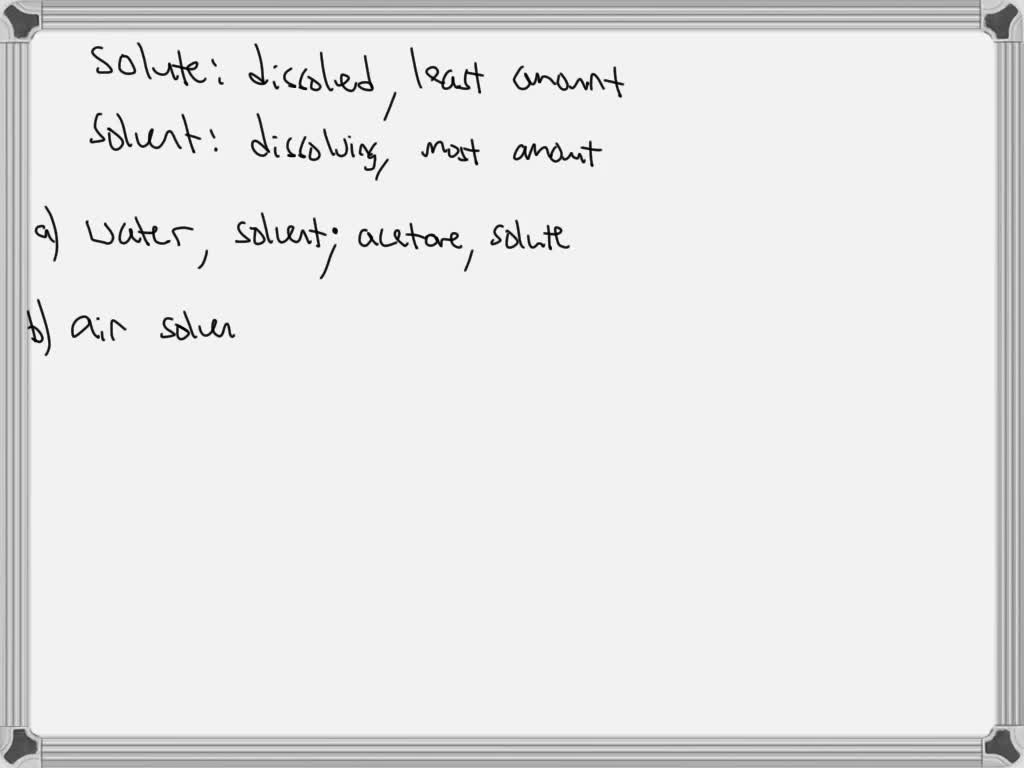 Solute: discoled, least amount
Solvent: discolving, most amount
a) water, solvent; acetone, solute
b) air solven